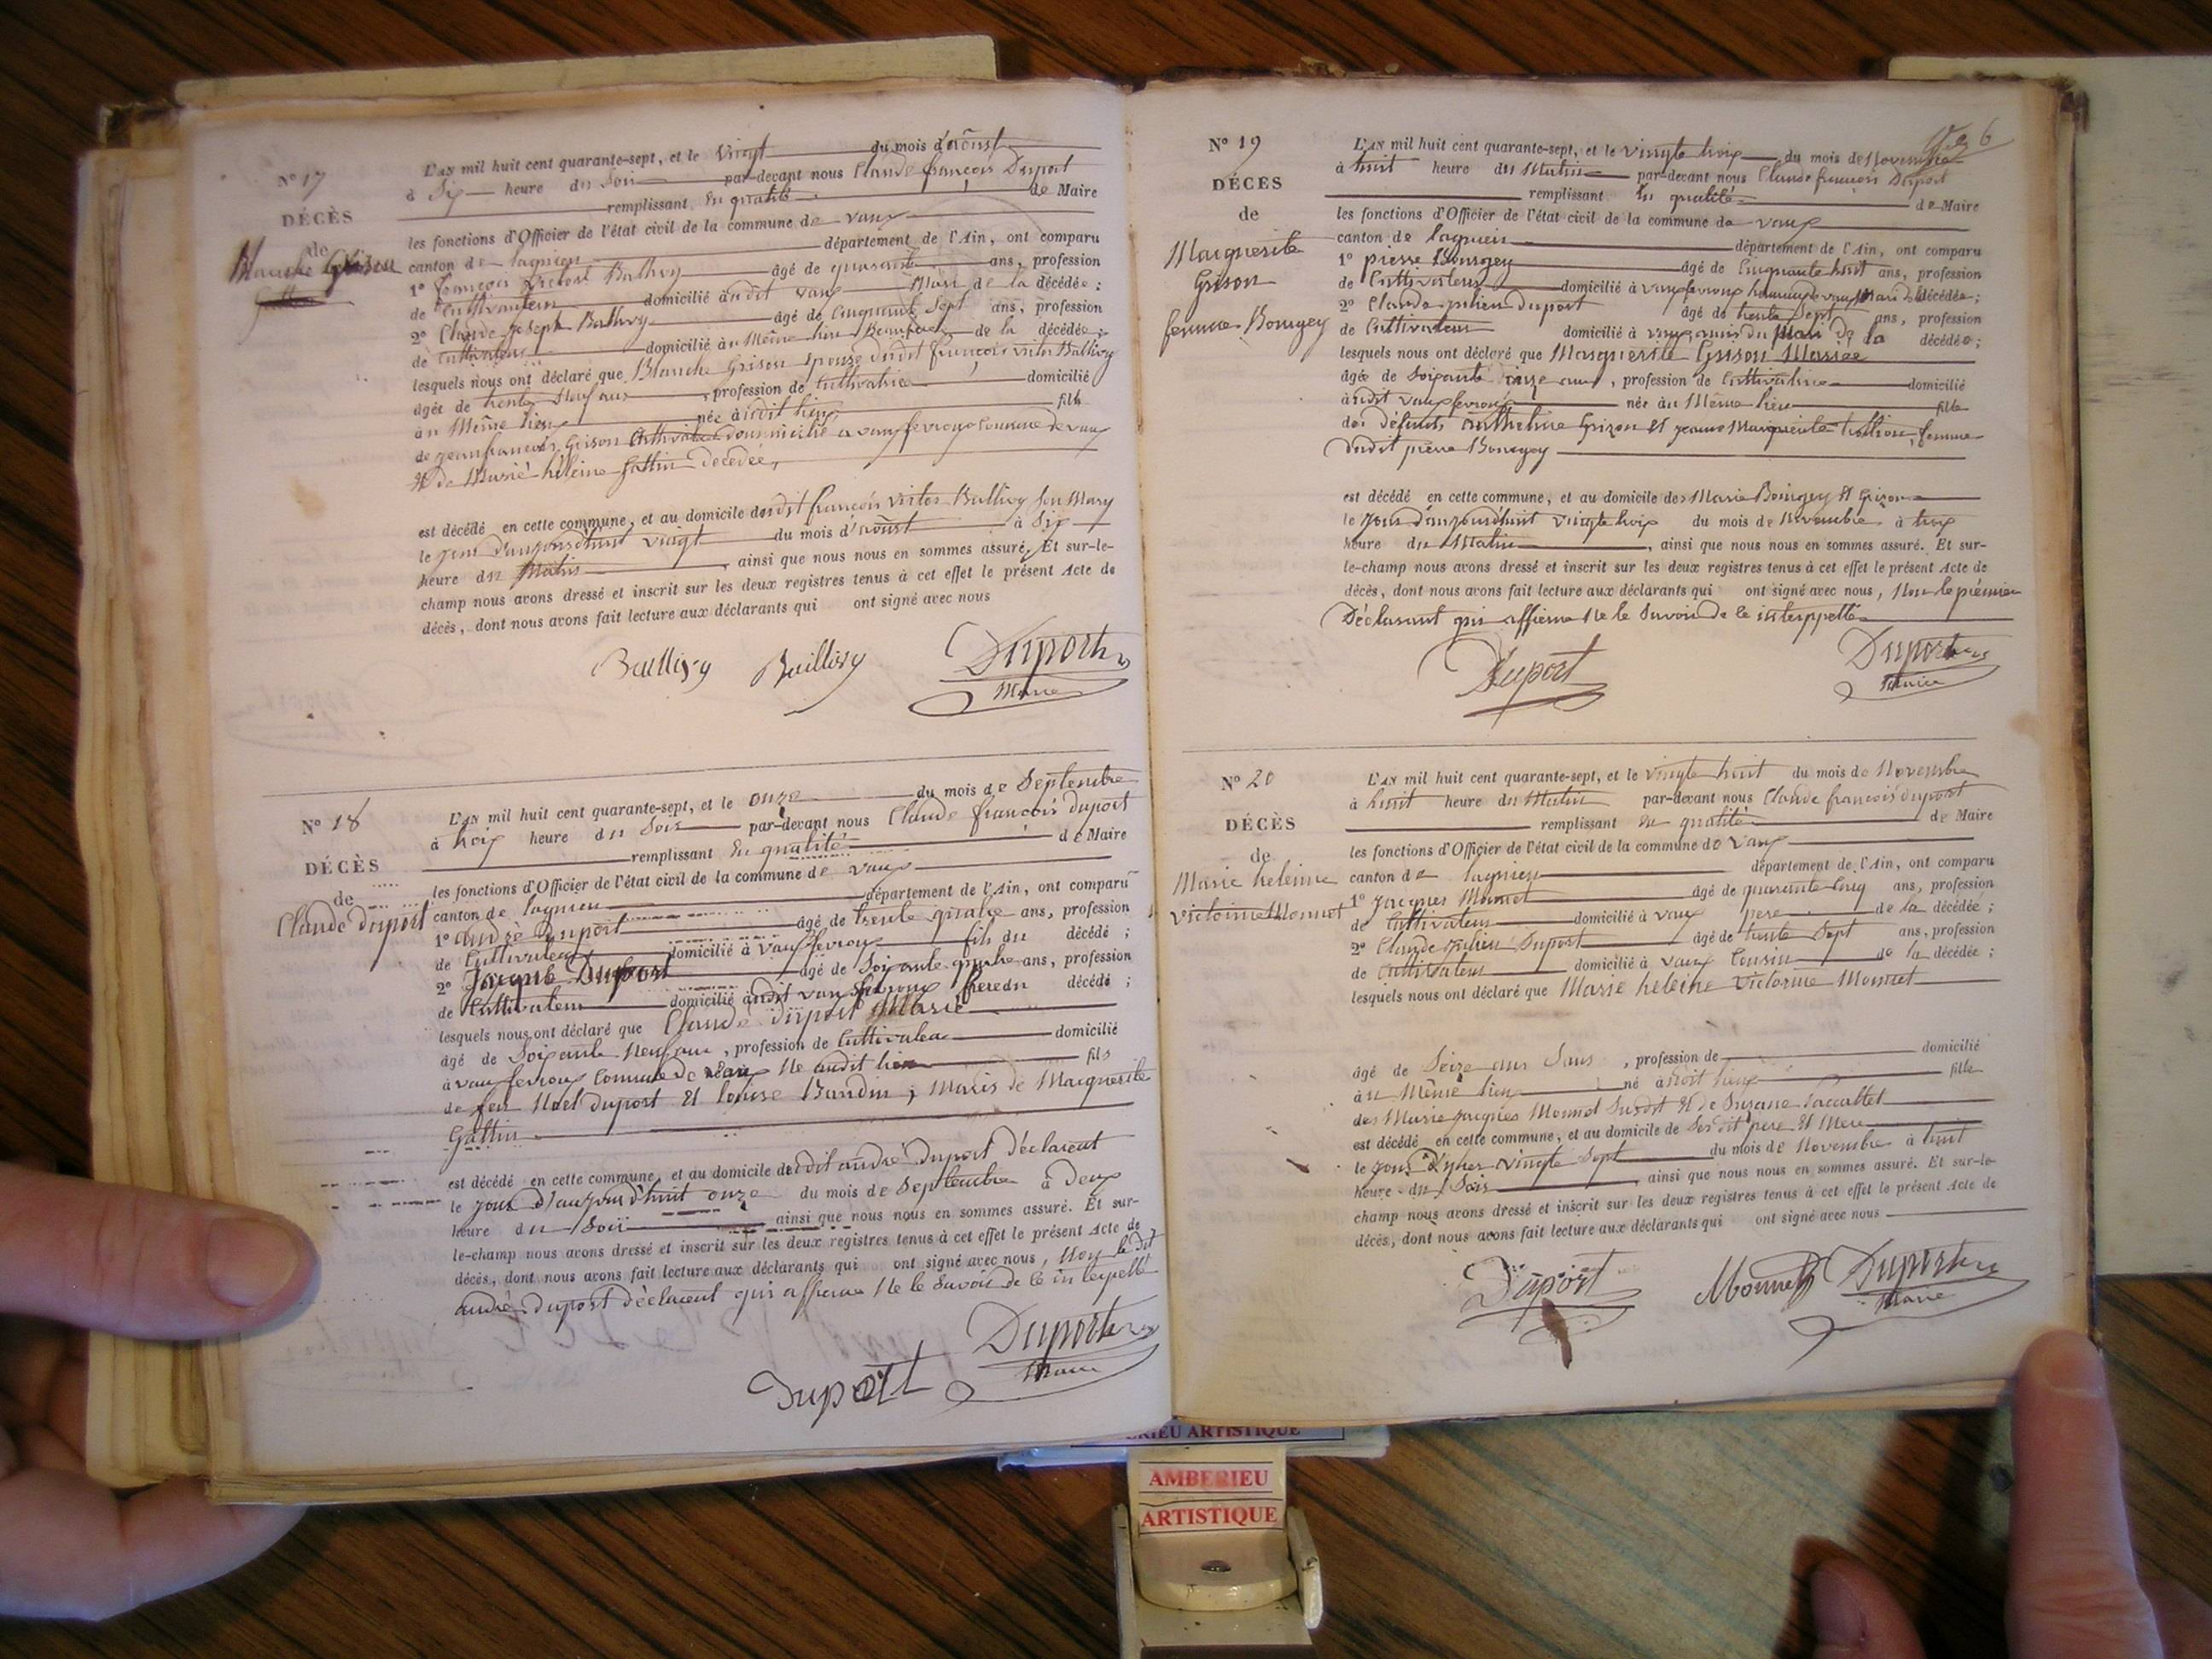 N° 17
DÉCÈS
de
Blanche Grison
L'AN mil huit cent quarante-sept, et le vingt du mois d'aoust
à Six heure du Soir par-devant nous Claude françois Duport
remplissant En qualité de Maire
les fonctions d'Officier de l'état civil de la commune de vaux
canton de lagnieu département de l'Ain, ont comparu
1° françois Victor Ballivy âgé de quarante ans, profession
de Cultivateur domicilié audit vaux Mari de la décédée ;
2° Claude Joseph Ballivy âgé de Cinquante Sept ans, profession
de Cultivateur domicilié au Même lieu Beaufrere de la décédée ;
lesquels nous ont déclaré que Blanche Grison Epouse dudit françois victor Ballivy
âgée de trente Neuf ans, profession de Cultivatrice domicilié
au Même lieu née audit lieu fille
de jean francois Grison Cultivateur domicilié a vaux fevroux Commune de vaux
Et de Marie héleine Gattin décédée,
est décédé en cette commune, et au domicile dudit françois victor Ballivy Son Mary
le jour d'aujourdhuit vingt du mois d'aoust à Six
heure du Matin, ainsi que nous nous en sommes assuré. Et sur-le-
champ nous avons dressé et inscrit sur les deux registres tenus à cet effet le présent Acte de
décès, dont nous avons fait lecture aux déclarants qui ont signé avec nous
Ballivy Baillivy Duport
Maire
N° 18
DÉCÈS
de
Claude duport
L'AN mil huit cent quarante-sept, et le onze du mois de Septembre
à trois heure du Soir par-devant nous Claude françois duport
remplissant En qualité de Maire
les fonctions d'Officier de l'état civil de la commune de vaux
canton de lagnieu département de l'Ain, ont comparu
1° andré Duport âgé de trente quatre ans, profession
de Cultivateur domicilié à vaux fevroux fils du décédé ;
2° Jacque Duport âgé de Soixante quatre ans, profession
de Cultivateur domicilié audit vaux fevroux frere du décédé ;
lesquels nous ont déclaré que Claude duport Marie
âgé de Soixante Neuf ans, profession de Cultivateur domicilié
à vaux fevroux Commune de vaux Ne audit lieu fils
de feu Noel duport Et louise Baudin ; Maris de Marguerite
Gattin
est décédé en cette commune, et au domicile dudit andré duport déclarent
le jour d'aujourd'huit onze du mois de Septembre à Deux
heure du Soir ainsi que nous nous en sommes assuré. Et sur-
le-champ nous avons dressé et inscrit sur les deux registres tenus à cet effet le présent Acte de
décès, dont nous avons fait lecture aux déclarants qui ont signé avec nous, Non le dit
andré duport déclarent qui affirme Ne le Savoir de ce interpellé
Duport Duport
Maire
N° 19
DÉCÈS
de
Marguerite
Grison
femme Bourgey
6
L'AN mil huit cent quarante-sept, et le vingte trois du mois de Novembre
à huit heure du Matin par-devant nous Claude françois Duport
remplissant En qualité de Maire
les fonctions d'Officier de l'état civil de la commune de vaux
canton de lagnieu département de l'Ain, ont comparu
1° pierre Bourgey âgé de Cinquante huit ans, profession
de Cultivateur domicilié à vaux fevroux Commune de vaux Mari de la décédée ;
2° Claude julien duport âgé de trente Sept ans, profession
de Cultivateur domicilié à vaux, amis du Mari de la décédée ;
lesquels nous ont déclaré que Marguerite Grison Mariée
âgée de Soixante onze ans, profession de Cultivatrice domicilié
audit vaux fevroux née au Même lieu fille
des défunts Anthelme Grison Et jeanne Marguerite femme
dudit pierre Bourgey
est décédé en cette commune, et au domicile des Marie Bourgey Et Grison
le jour d'aujourdhuit vingte trois du mois de Novembre à trois
heure du Matin, ainsi que nous nous en sommes assuré. Et sur-
le-champ nous avons dressé et inscrit sur les deux registres tenus à cet effet le présent Acte de
décès, dont nous avons fait lecture aux déclarants qui ont signé avec nous, Non le prémier
Déclarant qui affirme Ne le Savoir de le interppellé
Duport Duport
Maire
N° 20
DÉCÈS
de
Marie heleine
victoirine Monnet
L'AN mil huit cent quarante-sept, et le vingte huit du mois de Novembre
à huit heure du Matin par-devant nous Claude francois duport
remplissant En qualité de Maire
les fonctions d'Officier de l'état civil de la commune de Vaux
canton de lagnieu département de l'Ain, ont comparu
1° Jacques Monnet âgé de quarente Cinq ans, profession
de Cultivateur domicilié à vaux pere de la décédée ;
2° Claude Julien Duport âgé de trente Sept ans, profession
de Cultivateur domicilié à vaux Cousin de la décédée ;
lesquels nous ont déclaré que Marie heleine Victorine Monnet
âgé de Seize ans Sans, profession de domicilié
au Même lieu né audit lieux fille
des Marie jacques Monnet Susdit Et de Suzane
est décédé en cette commune, et au domicile de Sesdit pere Et Mere
le jour d'hyer vingte Sept du mois de Novembre à huit
heure du Soir, ainsi que nous nous en sommes assuré. Et sur-le-
champ nous avons dressé et inscrit sur les deux registres tenus à cet effet le présent Acte de
décès, dont nous avons fait lecture aux déclarants qui ont signé avec nous
Duport Monnet Duport
Maire
ARTISTIQUE
AMBERIEU
ARTISTIQUE